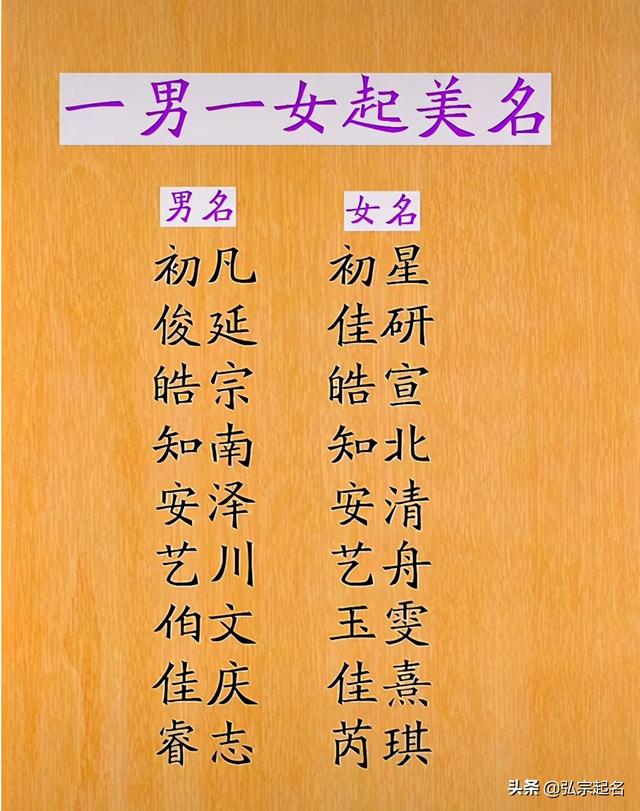 一男一女起美名
男名 女名
初凡 初星
俊延 佳研
皓宗 皓宣
知南 知北
安泽 安清
艺川 艺舟
伯文 玉雯
佳庆 佳熹
睿志 芮琪
头条 @弘宗起名